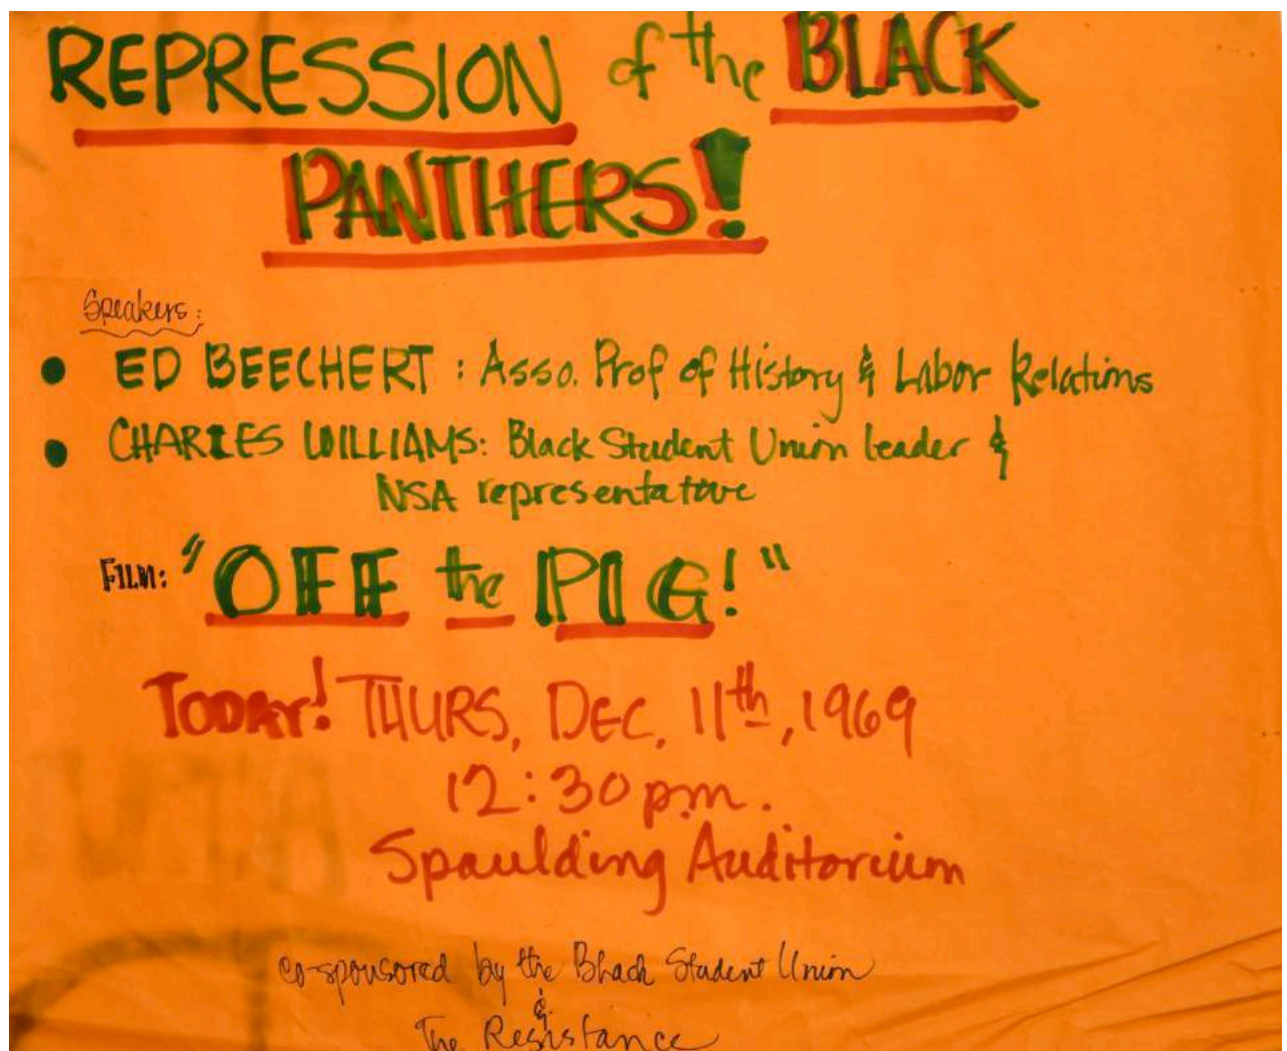 REPRESSION of the BLACK
PANTHERS!
Speakers:
• ED BEECHERT: Asso. Prof of History & Labor Relations
• CHARLES WILLIAMS: Black Student Union leader &
NSA representative
FILM: "OFF the PIG!"
TODAY! THURS, DEC. 11th, 1969
12:30 pm.
Spaulding Auditorium
co-sponsored by the Black Student Union
&
The Resistance